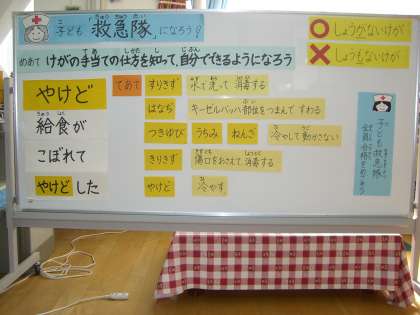 子ども 救急隊 になろう！
きゅう きゅう たい
めあて けがの手当ての仕方を知って、自分でできるようになろう
て あ しかた し じぶん
○ しょうがないけが
× しょうもないけが
やけど
給食が
こぼれて
やけどした
てあて
すりきず 水で洗って 消毒する
はなぢ キーゼルバッハ部位をつまんで すわる
つきゆび うちみ ねんざ 冷やして動かさない
きりきず 傷口をおさえて、消毒する
やけど 冷やす
子ども救急隊
全員合格をめざそう